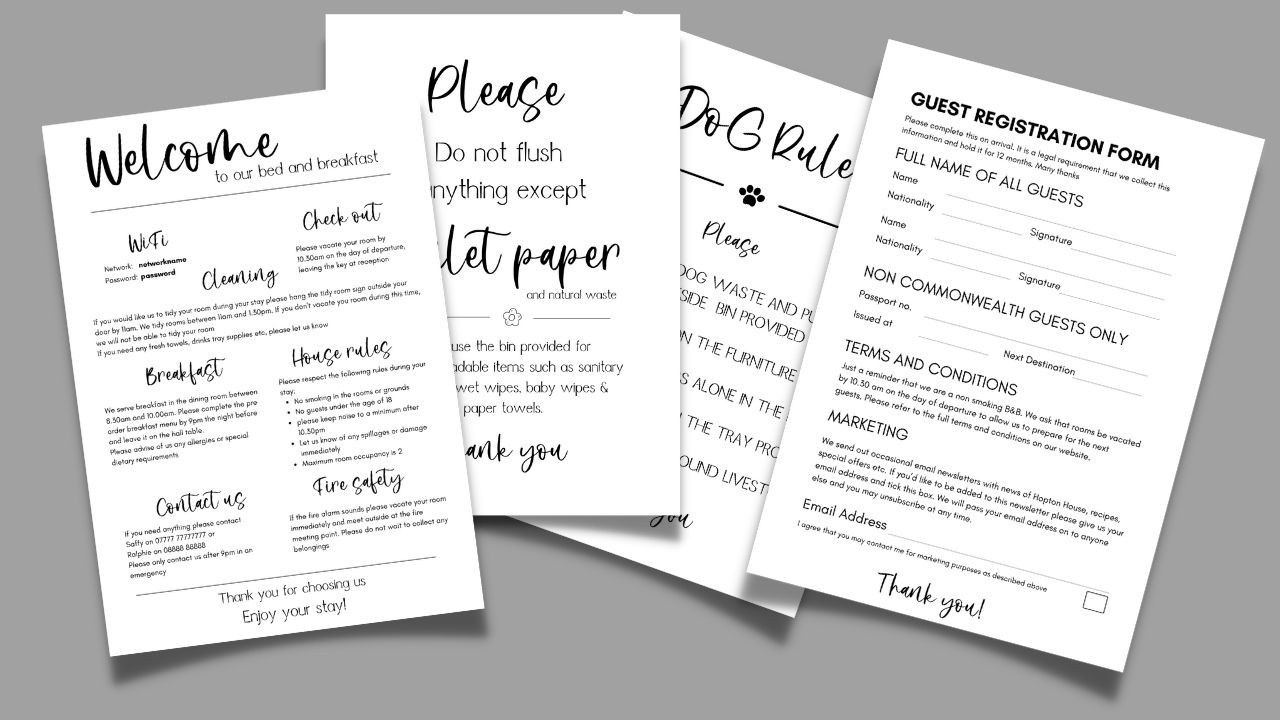 Welcome
to our bed and breakfast
WiFi
Network: networkname
Password: password
Check out
Please vacate your room by
10.30am on the day of departure,
leaving the key at reception
Cleaning
If you would like us to tidy your room during your stay please hang the tidy room sign outside your
door by 11am. We tidy rooms between 11am and 1.30pm. If you don't vacate you room during this time,
we will not be able to tidy your room
If you need any fresh towels, drinks tray supplies etc, please let us know
Breakfast
We serve breakfast in the dining room between
8.30am and 10.00am. Please complete the pre
order breakfast menu by 9pm the night before
and leave it on the hall table.
Please advise of us any allergies or special
dietary requirements
House rules
Please respect the following rules during your
stay:
• No smoking in the rooms or grounds
• No guests under the age of 18
• please keep noise to a minimum after
10.30pm
• Let us know of any spillages or damage
immediately
• Maximum room occupancy is 2
Contact us
If you need anything please contact
Saffy on 07777 77777777 or
Ralphie on 08888 88888
Please only contact us after 9pm in an
emergency
Fire safety
If the fire alarm sounds please vacate your room
immediately and meet outside at the fire
meeting point. Please do not wait to collect any
belongings
Thank you for choosing us
Enjoy your stay!
Please
Do not flush
nything except
let paper
and natural waste
use the bin provided for
adable items such as sanitary
wet wipes, baby wipes &
paper towels.
ank you
DoG Rule
Please
DOG WASTE AND PU
SIDE BIN PROVIDED
N THE FURNITURE
S ALONE IN THE
THE TRAY PRO
OUND LIVEST
You
GUEST REGISTRATION FORM
Please complete this on arrival. It is a legal requirement that we collect this
information and hold it for 12 months. Many thanks
FULL NAME OF ALL GUESTS
Name
Nationality
Signature
Name
Nationality
Signature
NON COMMONWEALTH GUESTS ONLY
Passport no.
Issued at
Next Destination
TERMS AND CONDITIONS
Just a reminder that we are a non smoking B&B. We ask that rooms be vacated
by 10.30 am on the day of departure to allow us to prepare for the next
guests. Please refer to the full terms and conditions on our website.
MARKETING
We send out occasional email newsletters with news of Hapton House, recipes,
special offers etc. If you'd like to be added to this newsletter please give us your
email address and tick this box. We will pass your email address on to anyone
else and you may unsubscribe at any time.
Email Address
I agree that you may contact me for marketing purposes as described above
Thank you!